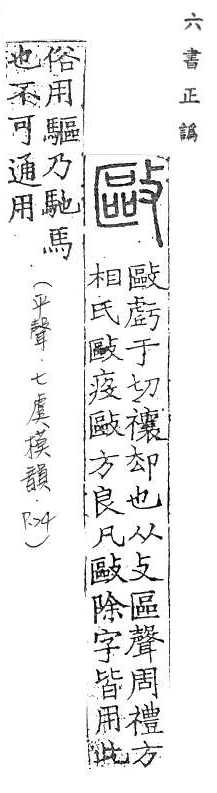 六書正譌
敺
敺虧于切禳却也从攴區聲周禮方
相氏敺疫敺方良凡敺除字皆用此
俗用驅乃馳馬
也不可通用
(平聲.七虞模韻.P.24)